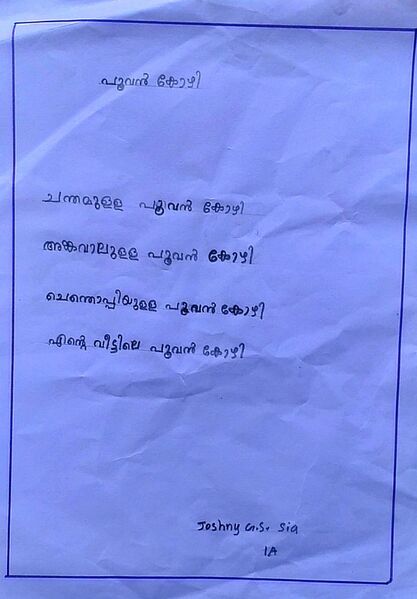 പൂവൻ കോഴി
ചന്തമുളള പൂവൻ കോഴി
അങ്കവാലുളള പൂവൻ കോഴി
ചെന്തൊപ്പിയുളള പൂവൻ കോഴി
എന്റെ വീട്ടിലെ പൂവൻ കോഴി
Joshny G.S. Sia
1A